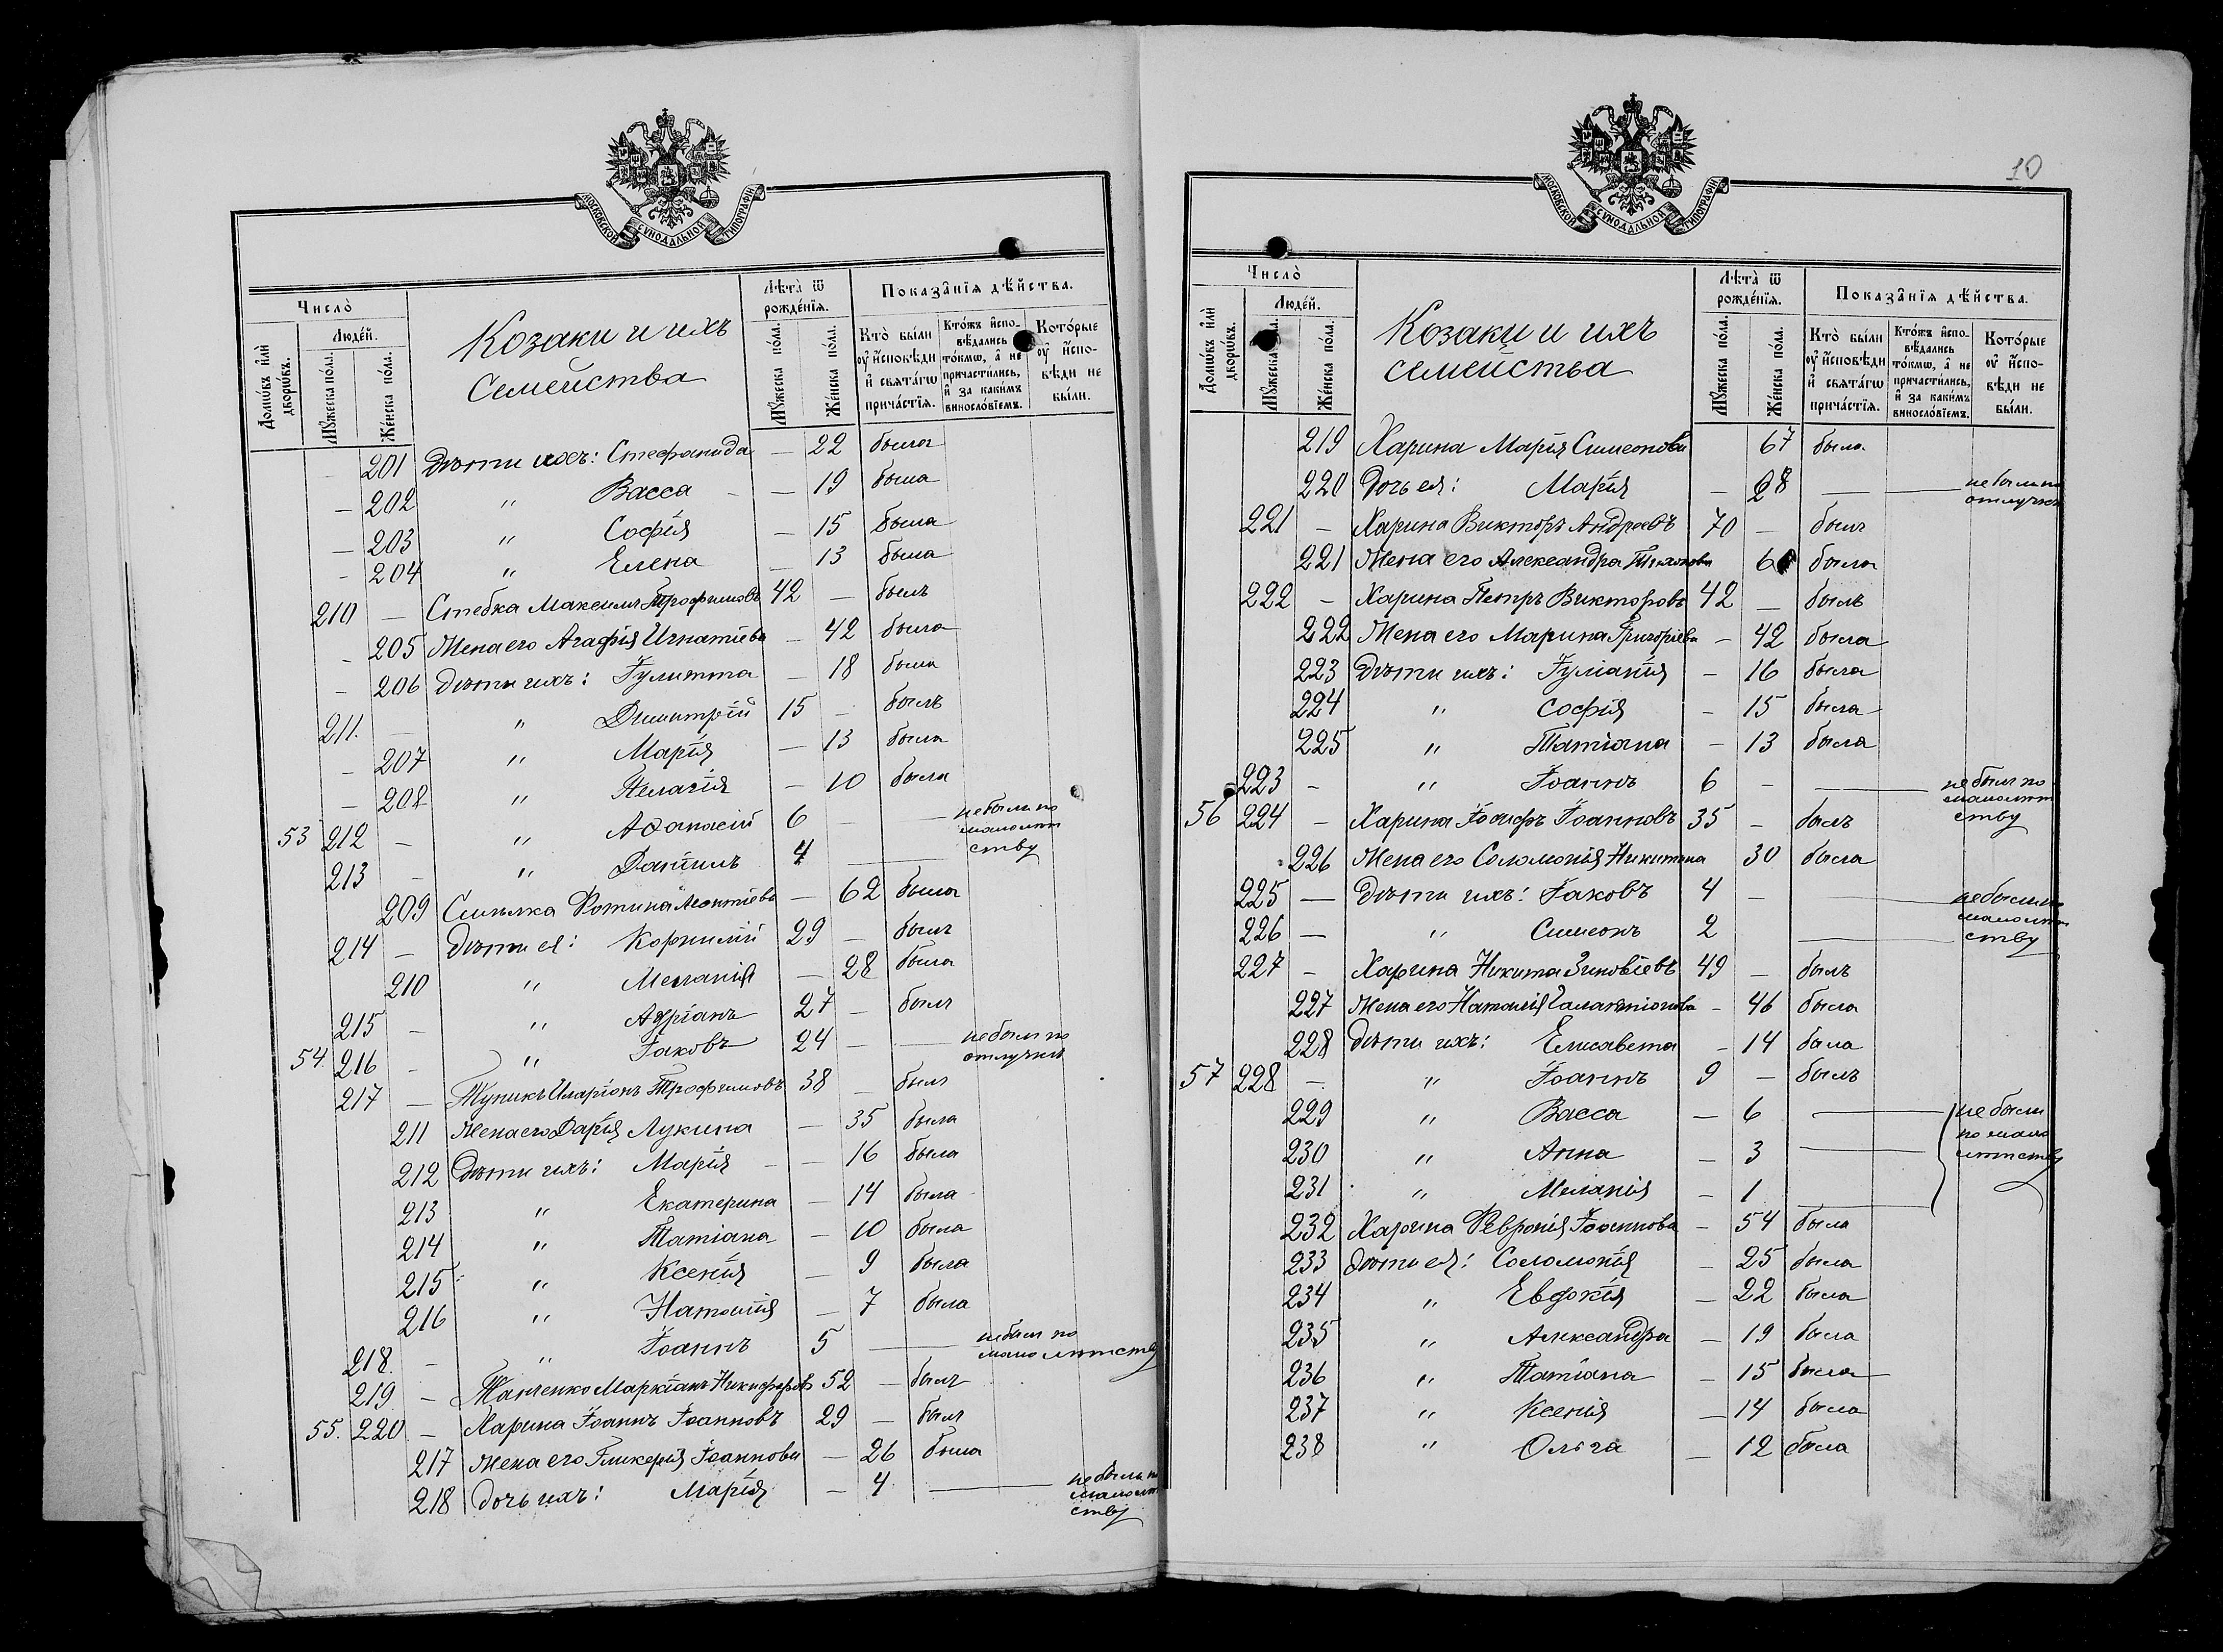 МОСКОВСКОЙ СѴНОДАЛЬНОЙ ТИПОГРАФІИ
Число̀
Домѡ́въ и҆лѝ дворѡ́въ.
Люде́й.
Мꙋ́жеска по́ла.
Же́нска по́ла.
Козаки и ихъ
Семейства
Лѣ́та ѿ рожде́нїѧ.
Мꙋ́жеска по́ла.
Же́нска по́ла.
Показа̑нїѧ дѣ́йства.
Кто̀ бы́ли ᲂу҆ и҆́сповѣди и҆ свѧта́гѡ прича́стїѧ.
Кто́жъ и҆спо-вѣ́дались то́кмѡ, а҆ не причасти́лись, и҆ за каки́мъ винослові́емъ.
Кото́рые ᲂу҆ и҆́спо-вѣди не бы́ли.
201 Дѣти ихъ: Стефанида — 22 была
— 202 " Васса — 19 была
— 203 " Софія — 15 была
- 204 " Елена — 13 была
210 — Стебка Максимъ Трофимовъ 42 — былъ
- 205 Жена его Агафія Игнатіева — 42 была
- 206 Дѣти ихъ: Іулитта — 18 была
211. — " Димитрій 15 — былъ
— 207 " Марія — 13 была
— 208 " Пелагія — 10 была
53 212 — " Аѳанасій 6 — — не были по
213 — " Даніилъ 4 — малолѣт
ству
209 Фотина Леонтіева — 62 была
214 — Дѣти ея: Корнилій 29 — былъ
210 " Меланія — 28 была
215 — " Адріанъ 27 — былъ
54. 216 - " Іаковъ 24 — — не былъ по
отлучкѣ
217 — Тупикъ Иларіонъ Трофимовъ 38 — былъ
211 Жена его Дарія Лукина — 35 была
212 Дѣти ихъ: Марія — 16 была
213 " Екатерина — 14 была
214 " Татіана — 10 была
215 " Ксенія — 9 была
216 " Наталія — 7 была
218. — " Іоаннъ 5 — — не былъ по
малолѣтству
219. — Маркіанъ Никифоровъ 52 — былъ
55. 220 — Харина Іоаннъ Іоанновъ 29 — былъ
217 Жена его Гликерія Іоаннова — 26 была
218 Дочь ихъ: Марія — 4 — не была по
малолѣт
ству
10
МОСКОВСКОЙ СѴНОДАЛЬНОЙ ТИПОГРАФІИ
Число̀
Домѡ́въ и҆лѝ дворѡ́въ.
Люде́й.
Мꙋ́жеска по́ла.
Же́нска по́ла.
Козаки и ихъ
семейства
Лѣ́та ѿ рожде́нїѧ.
Мꙋ́жеска по́ла.
Же́нска по́ла.
Показа̑нїѧ дѣ́йства.
Кто̀ бы́ли ᲂу҆ и҆́сповѣди и҆ свѧта́гѡ прича́стїѧ.
Кто́жъ и҆спо-вѣ́дались то́кмѡ, а҆ не причасти́лись, и҆ за каки́мъ винослові́емъ.
Кото́рые ᲂу҆ и҆́спо-вѣди не бы́ли.
219 Харина Марія Симеонова 67 была
220 Дочь ея: Марія — 28 — — не была по
отлучкѣ
221 - Харина Викторъ Андреевъ 70 - былъ
221 Жена его Александра Тихонова была
222 - Харина Петръ Викторовъ 42 — былъ
222 Жена его Марина Григоріева - 42 была
223 Дѣти ихъ: Іуліанія - 16 была
224 " Софія - 15 была
225 " Татіана - 13 была
223 - " Іоаннъ 6 - — не былъ по
малолѣт
ству
56 224 - Харина Іосифъ Іоанновъ 35 - былъ
226 Жена его Соломонія Никитина 30 была
225 — Дѣти ихъ: Іаковъ 4 - — не были по
малолѣт
226 — " Симеонъ 2 — ству
227 - Харина Никита Зиновіевъ 49 - былъ
227 Жена его Наталія Галактіонова - 46 была
228 Дѣти ихъ: Елисавета - 14 была
57 228 — " Іоаннъ 9 - былъ
229 " Васса — 6 — не были
230 " Анна — 3 — по мало
лѣтству
231 " Меланія — 1 —
232 Харина Февронія Іоаннова - 54 была
233 Дѣти ея: Соломонія - 25 была
234 " Евфимія — 22 была
235 " Александра — 19 была
236 " Татіана — 15 была
237 " Ксенія — 14 была
238 " Ольга — 12 была